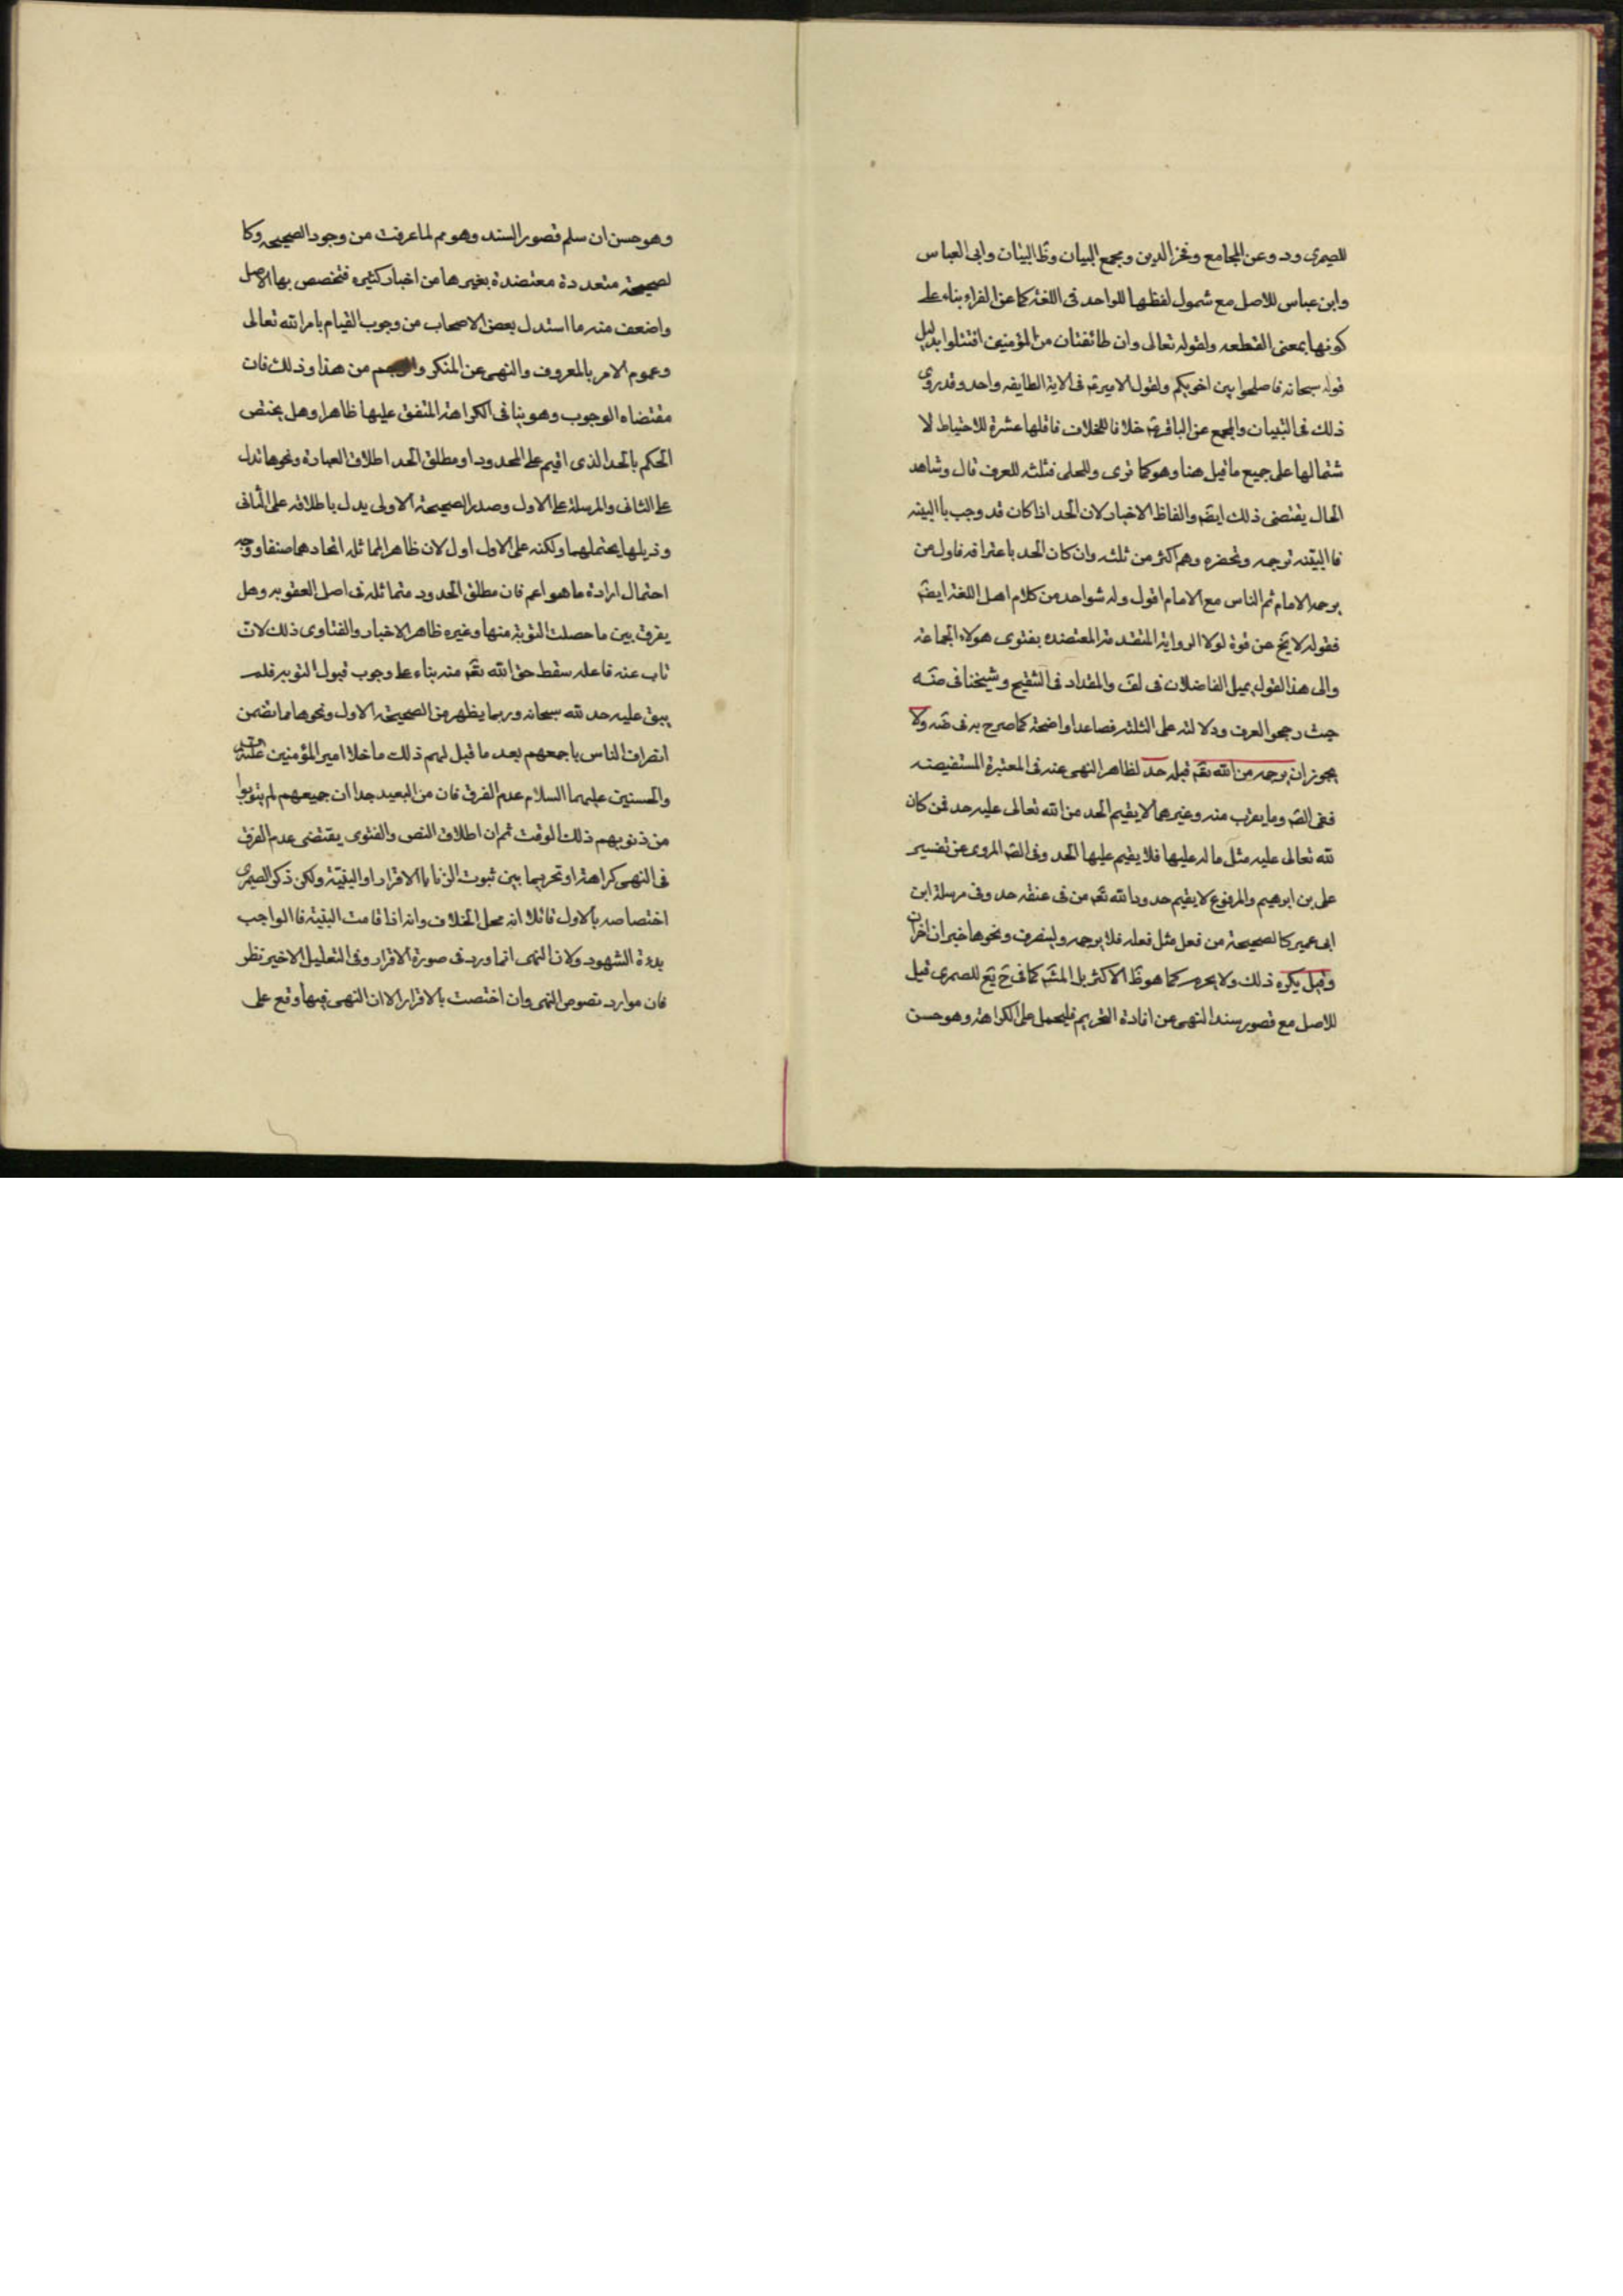 للصیمری ود وعن الجامع وفخر الدین ومجمع البیان وظ التبیان وابی العباس
وابن عباس للاصل مع شمول لفظها للواحد فی اللغة کما عن الفراء بناء علی
کونها بمعنی القطعه ولقوله تعالی وان طائفتان من المؤمنین اقتتلوا بدلیل
قوله سبحانه فاصلحوا بین اخویکم ولقول الامیر ع فی الایة الطایفه واحد وقد روی
ذلک فی التبیان والمجمع عن الباقر ع خلافا للخلاف فاقلها عشرة للاحتیاط لا
شتمالها علی جمیع ما قیل هنا وهو کما تری وللحلی فثلثه للعرف قال وشاهد
الحال یقتضی ذلک ایضَم والفاظ الاخبار لان الحد اذا کان قد وجب باالبینه
فاالبیتنه ترجمه وتحضره وهم اکثر من ثلثه وان کان الحد باعترافه فاول من
یرجمه الامام ثم الناس مع الامام اقول وله شواهد من کلام اهل اللغة ایضَم
فقوله لا یخ عن قوة لولا الروایة المتقدمة المعتضده بفتوی هولاء الجماعة
والی هذا القول یمیل الفاضلان فی لف والمقداد فی التنقیح وشیخنا فی ضَه
حیث رجحوا العرف ودلالته علی الثلثه فصاعدا واضحة کما صرح به فی ضَه ولا
یجوز ان یرجمه من لله تعَم قبله حد لظاهر النهی عنه فی المعتبرة المستفیضه
ففی الصَم وما یقرب منه وغیرهما لا یقیم الحد من لله تعالی علیه حد فمن کان
لله تعالی علیه مثل ما له علیها فلا یقیم علیها الحد وفی الصَم المروی عن تفسیر
علی بن ابرهیم والمرفوع لا یقیم حدود الله تعَم من فی عنقه حد وفی مرسلة ابن
ابی عمیر کالصحیحة من فعل مثل فعله فلا یرجمه ولینصرف ونحوها خبران اخران
وقیل یکره ذلک ولا یحرم کما هو ظَ الاکثر بل المشَم کما فی حَ یع للصمری قیل
للاصل مع قصور سند النهی عن افادة التحریم فلیحمل علی الکراهة وهو حسن
وهو حسن ان سلم قصور السند وهو مم لما عرفت من وجود الصحیحه وکا
لصحیحة متعددة معتضدة بغیرها من اخبار کثیره فتخصص بها الاصل
واضعف منه ما استدل بعض الاصحاب من وجوب القیام بامر الله تعالی
وعموم الامر بالمعروف والنهی عن المنکر من هذا وذلک فان
مقتضاه الوجوب وهو ینافی الکراهة المتفق علیها ظاهرا وهل یختص
الحکم بالحد الذی اقیم علی المحدود او مطلق الحد اطلاق العبارة ونحوها تدل
علی الثانی والمرسلة علی الاول وصدر الصحیحة الاولی یدل باطلاقه علی الثانی
وذیلها یحتملهما ولکنه علی الاول اول لان ظاهر المماثله اتحادهما صنفا ووجه
احتمال ارادة ما هو اعم فان مطلق الحدود متماثلة فی اصل العقوبه وهل
یفرق بین ما حصلت التوبة منها وغیره ظاهر الاخبار والفتاوی ذلک لان
تاب عنه فاعله سقط حق الله تعَم منه بناء علی وجوب قبول التوبه فلم
یبق علیه حد لله سبحانه وربما یظهر من الصحیحة الاول ونحوها مما تضمن
انصراف الناس باجمعهم بعد ما قیل لهم ذلک ما خلا امیر المؤمنین
والحسنین علیهما السلام عدم الفرق فان من البعید جدا ان جمیعهم لم یتوبوا
من ذنوبهم ذلک الوقت ثم ان اطلاق النص والفتوی یقتضی عدم الفرق
فی النهی کراهة او تحریما بین ثبوت الزنا باالاقرار او البیّنة ولکن ذکر الصیمری
اختصاصه بالاول قائلا انه محل الخلاف وانه اذا قامت البینة فاالواجب
بدءة الشهود ولان النهی انما ورد فی صورة الاقرار وفی التعلیل الاخیر نظر
فان موارد نصوص النهی وان اختصت بالاقرار الا ان النهی فیها وقع علی